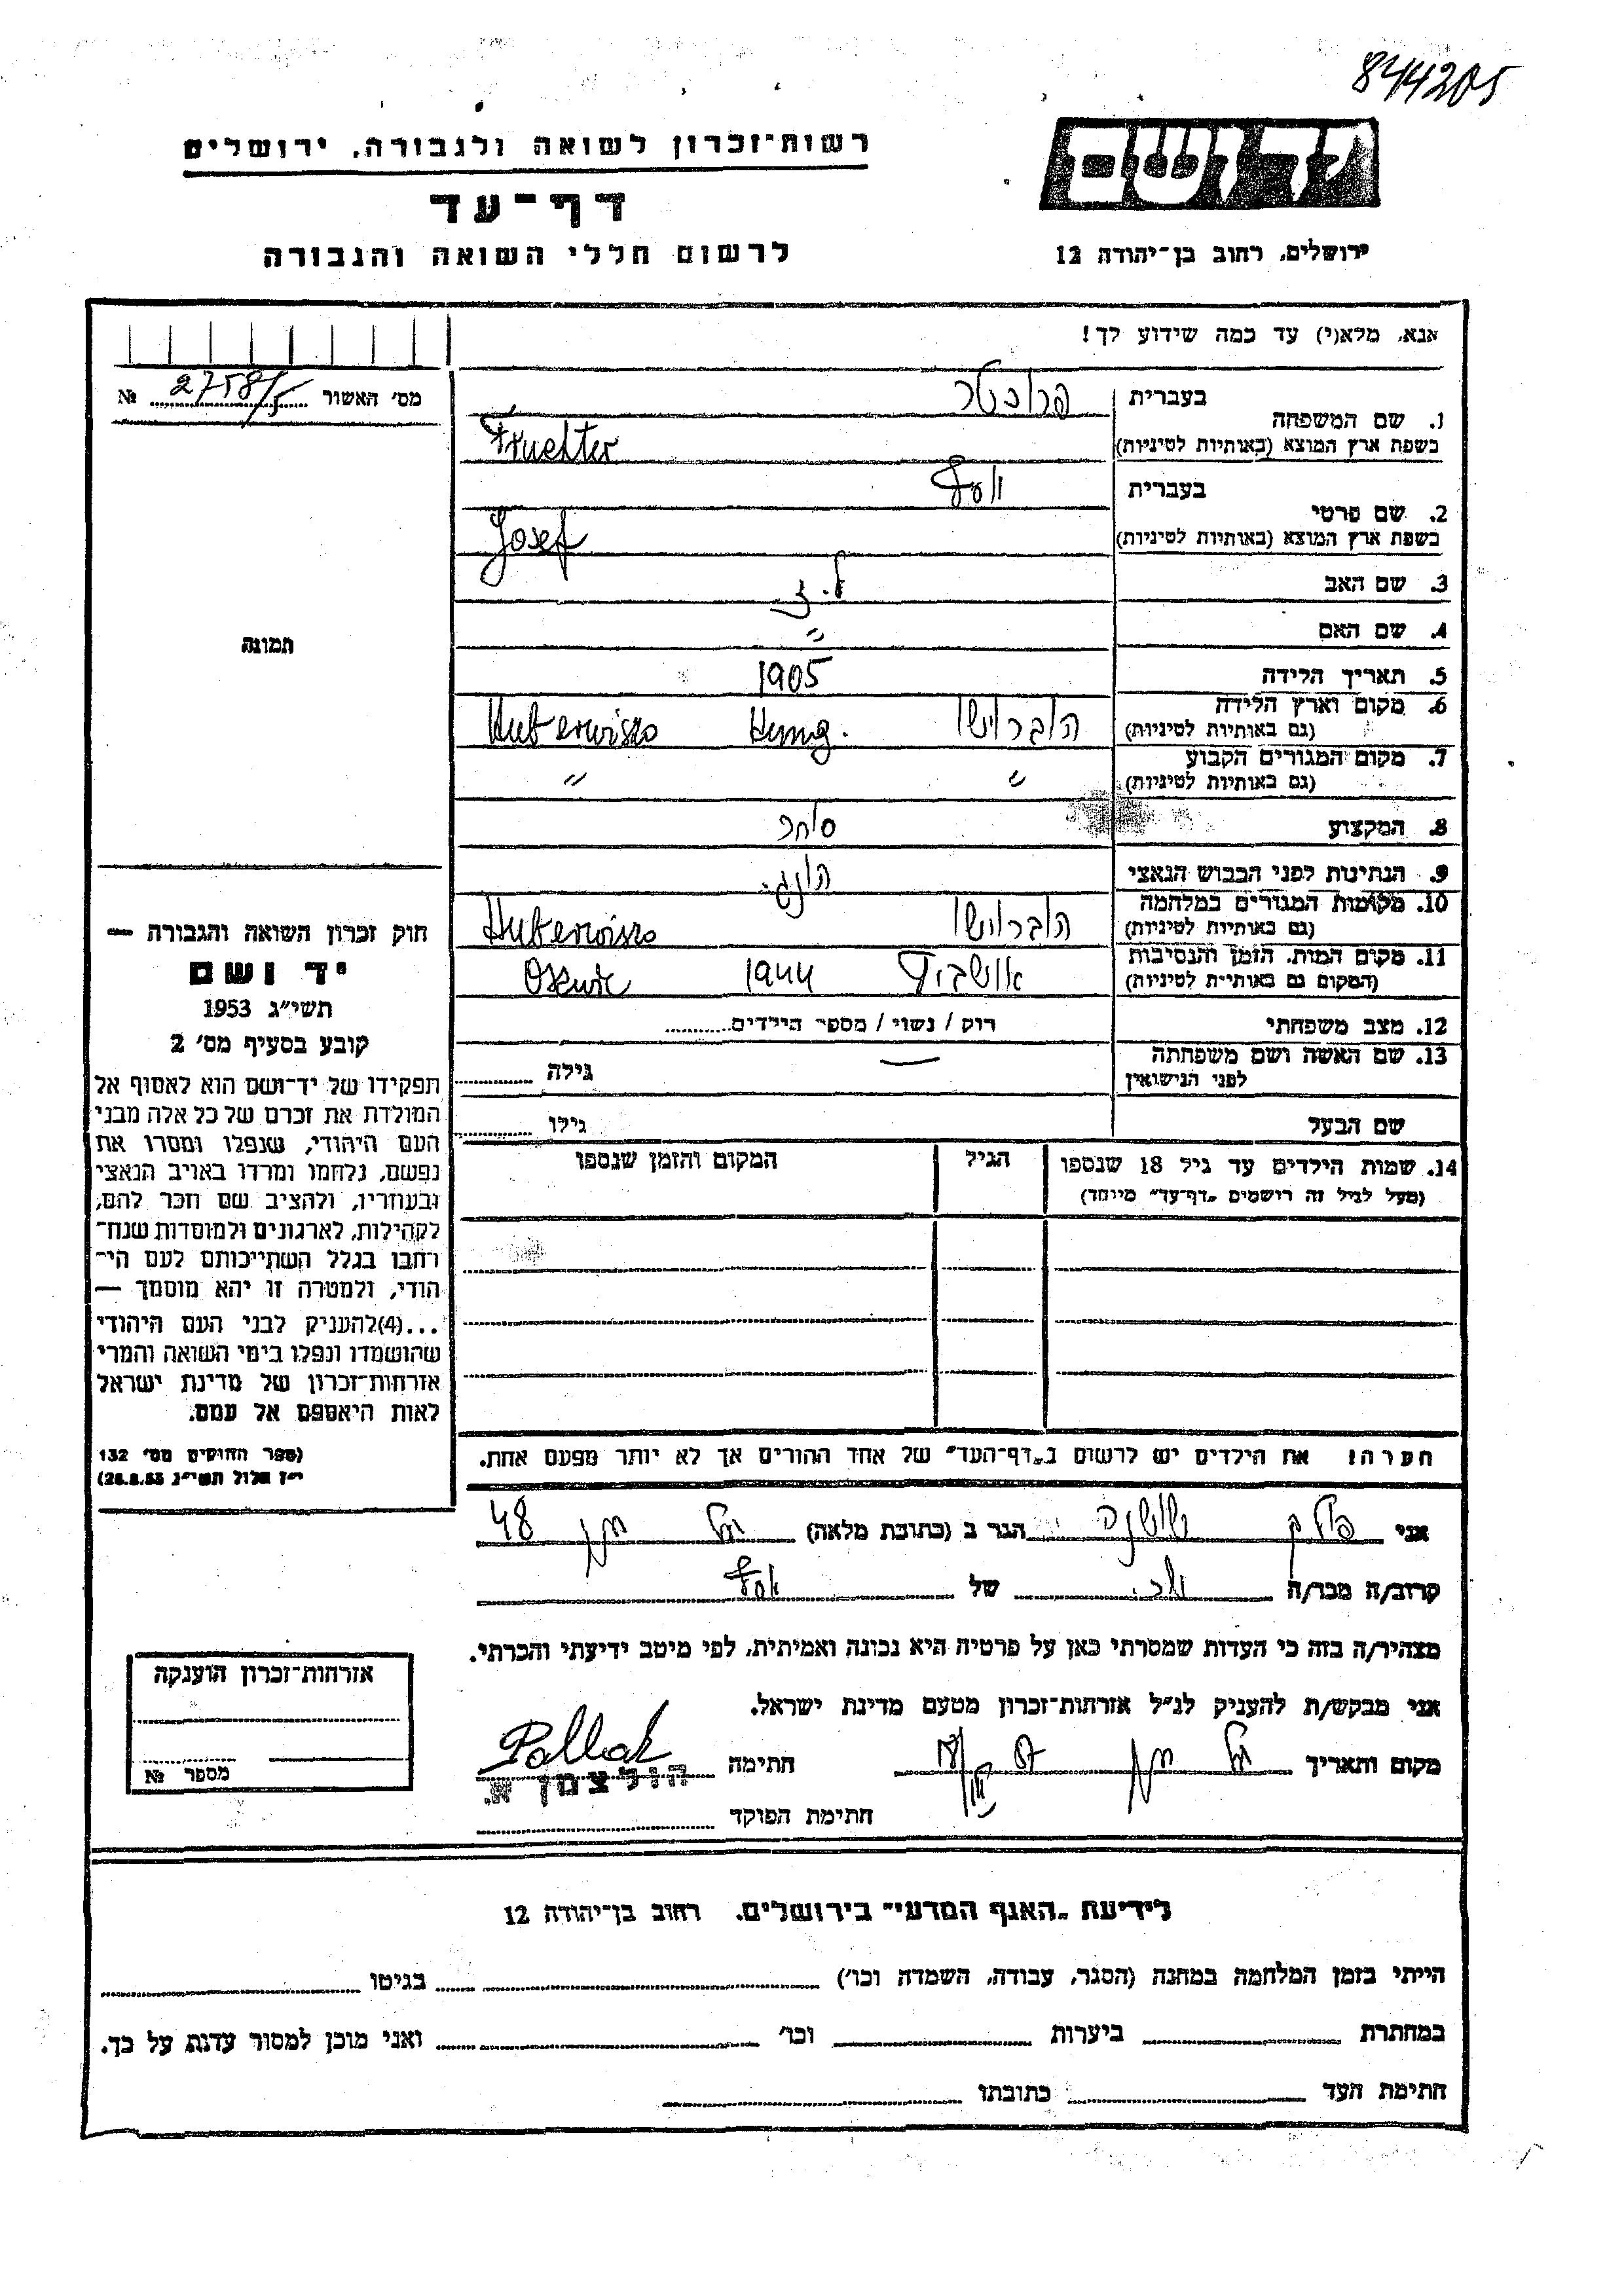 844205
רשות־זכרון לשואה ולגבורה, ירושלים
דף־עד
לרשום חללי השואה והגבורה
יד ושם
ירושלים, רחוב בן־יהודה 12
אנא, מלא(י) עד כמה שידוע לך!
מס' האשור 2758/5 №
1. שם המשפחה
בעברית פרוכטר
בשפת ארץ המוצא (באותיות לטיניות) Fruchter
2. שם פרטי
בעברית יוסף
בשפת ארץ המוצא (באותיות לטיניות) Josef
3. שם האב ל.י.
4. שם האם "
5. תאריך הלידה 1905
6. מקום וארץ הלידה
(גם באותיות לטיניות) Hung.
7. מקום המגורים הקבוע
(גם באותיות לטיניות) " "
8. המקצוע סוחר
9. הנתינות לפני הכבוש הנאצי הונג.
10. מקומות המגורים במלחמה
(גם באותיות לטיניות)
11. מקום המות, הזמן והנסיבות
(המקום גם באותיות לטיניות) אושביץ 1944
12. מצב משפחתי רוק / נשוי / מספר הילדים
13. שם האשה ושם משפחתה
לפני הנישואין — גילה
שם הבעל גילו
14. שמות הילדים עד גיל 18 שנספו
(מעל לגיל זה רושמים "דף־עד" מיוחד)
הגיל
המקום והזמן שנספו
תמונה
חוק זכרון השואה והגבורה —
יד ושם
תשי"ג 1953
קובע בסעיף מס' 2
תפקידו של יד־ושם הוא לאסוף אל
המולדת את זכרם של כל אלה מבני
העם היהודי, שנפלו ומסרו את
נפשם, נלחמו ומרדו באויב הנאצי
ובעוזריו, ולהציב שם וזכר להם,
לקהילות, לארגונים ולמוסדות שנח־
רחבו בגלל השתייכותם לעם הי־
הודי, ולמטרה זו יהא מוסמך —
...(4)להעניק לבני העם היהודי
שהושמדו ונפלו בימי השואה והמרי
אזרחות־זכרון של מדינת ישראל
לאות היאספם אל עמם.
(ספר החוקים מס' 132
י"ז אלול תשי"ג 28.8.53)
הערה: את הילדים יש לרשום ב"דף־העד" של אחד ההורים אך לא יותר מפעם אחת.
אני פולק שושנה הגר ב (כתובת מלאה) 48
קרוב/ה מכר/ה של
מצהיר/ה בזה כי העדות שמסרתי כאן על פרטיה היא נכונה ואמיתית, לפי מיטב ידיעתי והכרתי.
אני מבקש/ת להעניק לנ"ל אזרחות־זכרון מטעם מדינת ישראל.
מקום ותאריך חתימה Pollak
הולצמן א.
חתימת הפוקד
אזרחות־זכרון הוענקה
מספר №
לידיעת "האגף המדעי" בירושלים, רחוב בן־יהודה 12
הייתי בזמן המלחמה במחנה (הסגר, עבודה, השמדה וכו') בגיטו
במחתרת ביערות וכו' ואני מוכן למסור עדות על כך.
חתימת העד כתובתו